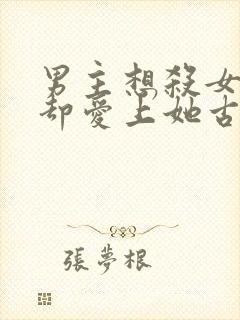 男主想殺女
卻愛上她古
張夢根